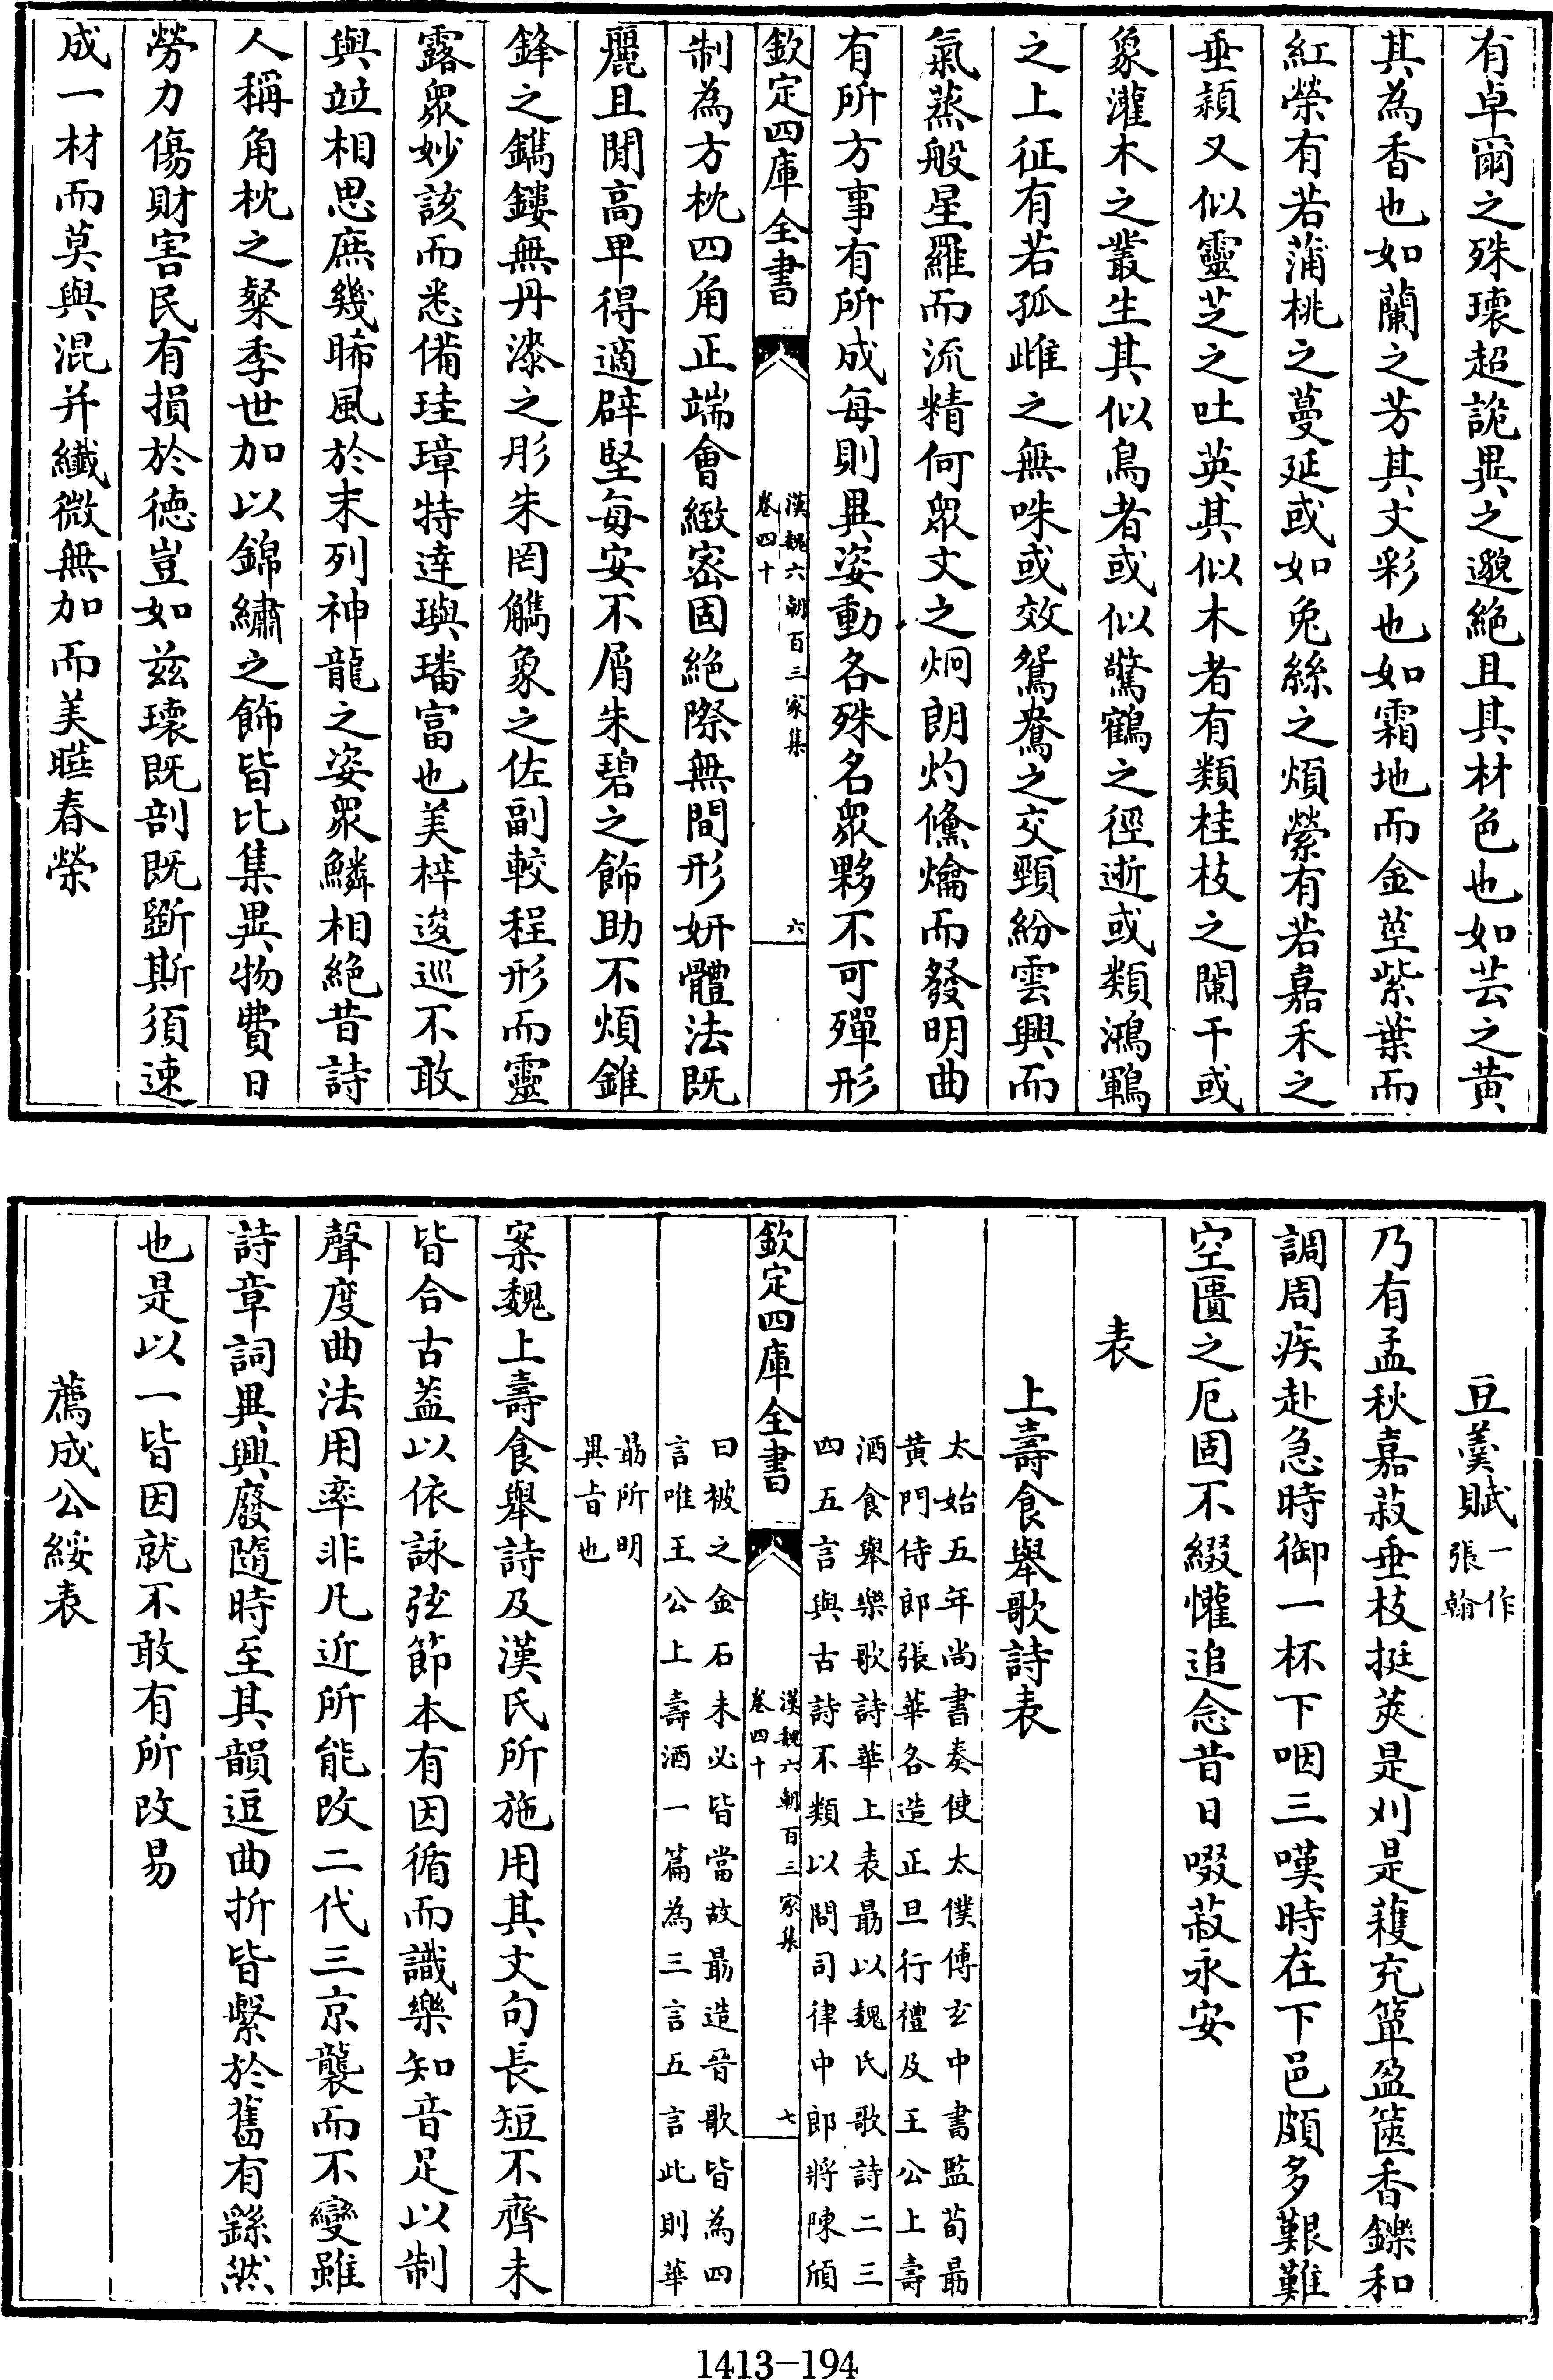 有卓爾之殊瓌超詭異之邈絶且其材色也如芸之黄
其為香也如蘭之芳其文彩也如霜地而金莖紫葉而
紅榮有若蒲桃之蔓延或如兔絲之煩縈有若嘉禾之
垂頴又似靈芝之吐英其似木者有類桂枝之闌干或
象灌木之叢生其似鳥者或似驚鶴之徑逝或類鴻鶤
之上征有若孤雌之無咮或效鴛鴦之交頸紛雲興而
氣蒸般星羅而流精何衆文之炯朗灼儵爚而發明曲
有所方事有所成每則異姿動各殊名衆夥不可殫形
欽定四庫全書
漢魏六朝百三家集
卷四十
六
制為方枕四角正端會緻密固絶際無間形妍體法既
麗且閒高卑得適辟堅每安不屑朱碧之飾助不煩錐
鋒之鐫鏤無丹漆之彤朱罔觹象之佐副較程形而靈
露衆妙該而悉備珪璋特達璵璠富也美梓逡巡不敢
與竝相思庶幾睎風於末列神龍之姿衆鱗相絶昔詩
人稱角枕之粲季世加以錦繡之飾皆比集異物費日
勞力傷財害民有損於徳豈如兹瓌既剖既斲斯須速
成一材而莫與混并纖微無加而美曄春榮
豆羮賦一作
張翰
乃有孟秋嘉菽垂枝挺莢是刈是穫充簞盈篋香鑠和
調周疾赴急時御一杯下咽三嘆時在下邑頗多艱難
空匱之厄固不綴懽追念昔日啜菽永安
表
上壽食舉歌詩表
太始五年尚書奏使太僕傅玄中書監荀朂
黄門侍郎張華各造正旦行禮及王公上壽
酒食舉樂歌詩華上表朂以魏氏歌詩二三
四五言與古詩不類以問司律中郎將陳頎
欽定四庫全書
漢魏六朝百三家集
卷四十
七
曰被之金石未必皆當故朂造晉歌皆為四
言唯王公上壽酒一篇為三言五言此則華
朂所明
異旨也
案魏上壽食舉詩及漢氏所施用其文句長短不齊未
皆合古葢以依詠弦節本有因循而識樂知音足以制
聲度曲法用率非凡近所能改二代三京襲而不變雖
詩章詞異興廢隨時至其韻逗曲折皆繫於舊有繇然
也是以一皆因就不敢有所改易
薦成公綏表
1413-194